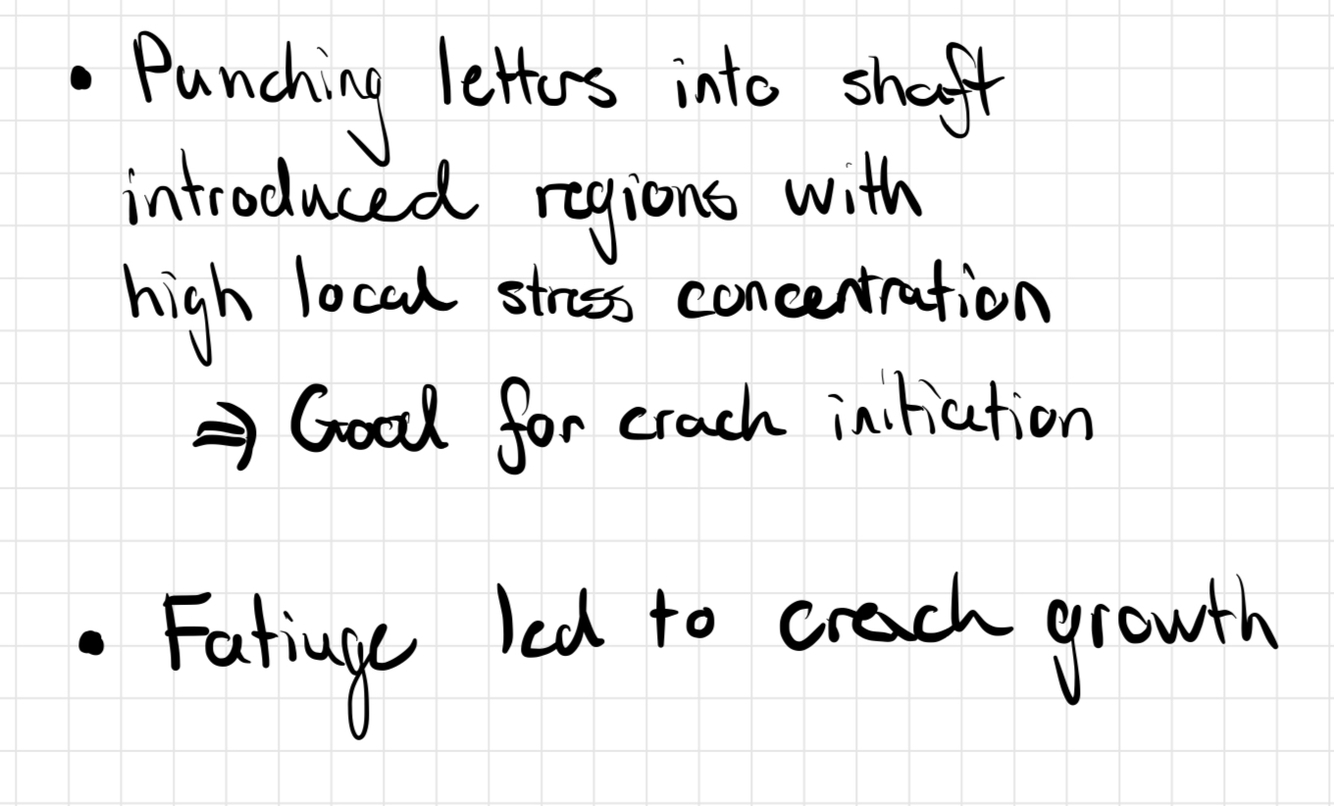 • Punching letters into shaft
introduced regions with
high local stress concentration
⇒ Good for crack initiation
• Fatiuge led to crack growth